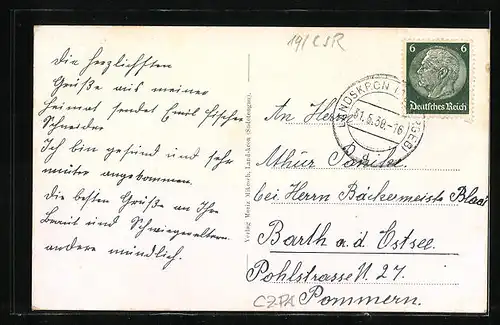 19/ČSR
Die herzlichsten
Grüße aus meiner
Heimat sendet Emil Fischer
Schneider
Ich bin gesund und sehr
munter angekommen.
Die besten Grüße an Ihre
Braut und Schwiegereltern.
andere mündlich.
Verlag Moritz Mikesch, Landskron (Sudetengau).
6 6
Deutsches Reich
LANDSKRON
An Herrn
Athur
bei Herrn Bäckermeister
Barth a. d. Ostsee.
Pohlstrasse N. 27.
Pommern.